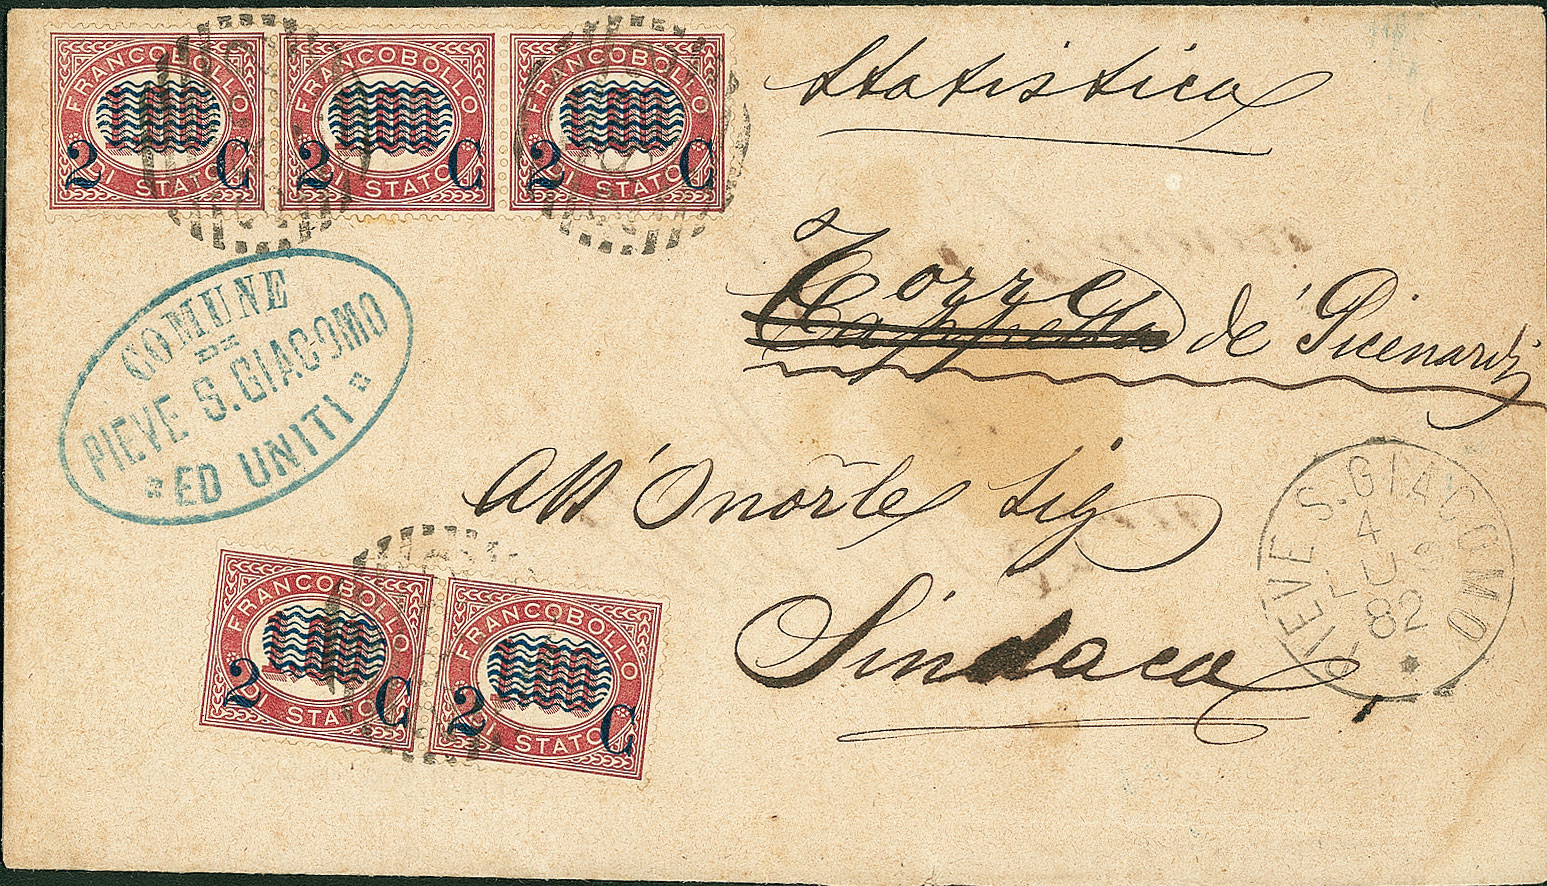 FRANCOBOLLO
2 C
DI STATO
FRANCOBOLLO
2 C
DI STATO
FRANCOBOLLO
2 C
DI STATO
Statistica
Torre
Cappella de' Picenardi
COMUNE
DI
PIEVE S. GIACOMO
ED UNITI
All' Onorle Sig
Sindaca
PIEVE S. GIACOMO
4
LUG
82
FRANCOBOLLO
2 C
DI STATO
FRANCOBOLLO
2 C
DI STATO